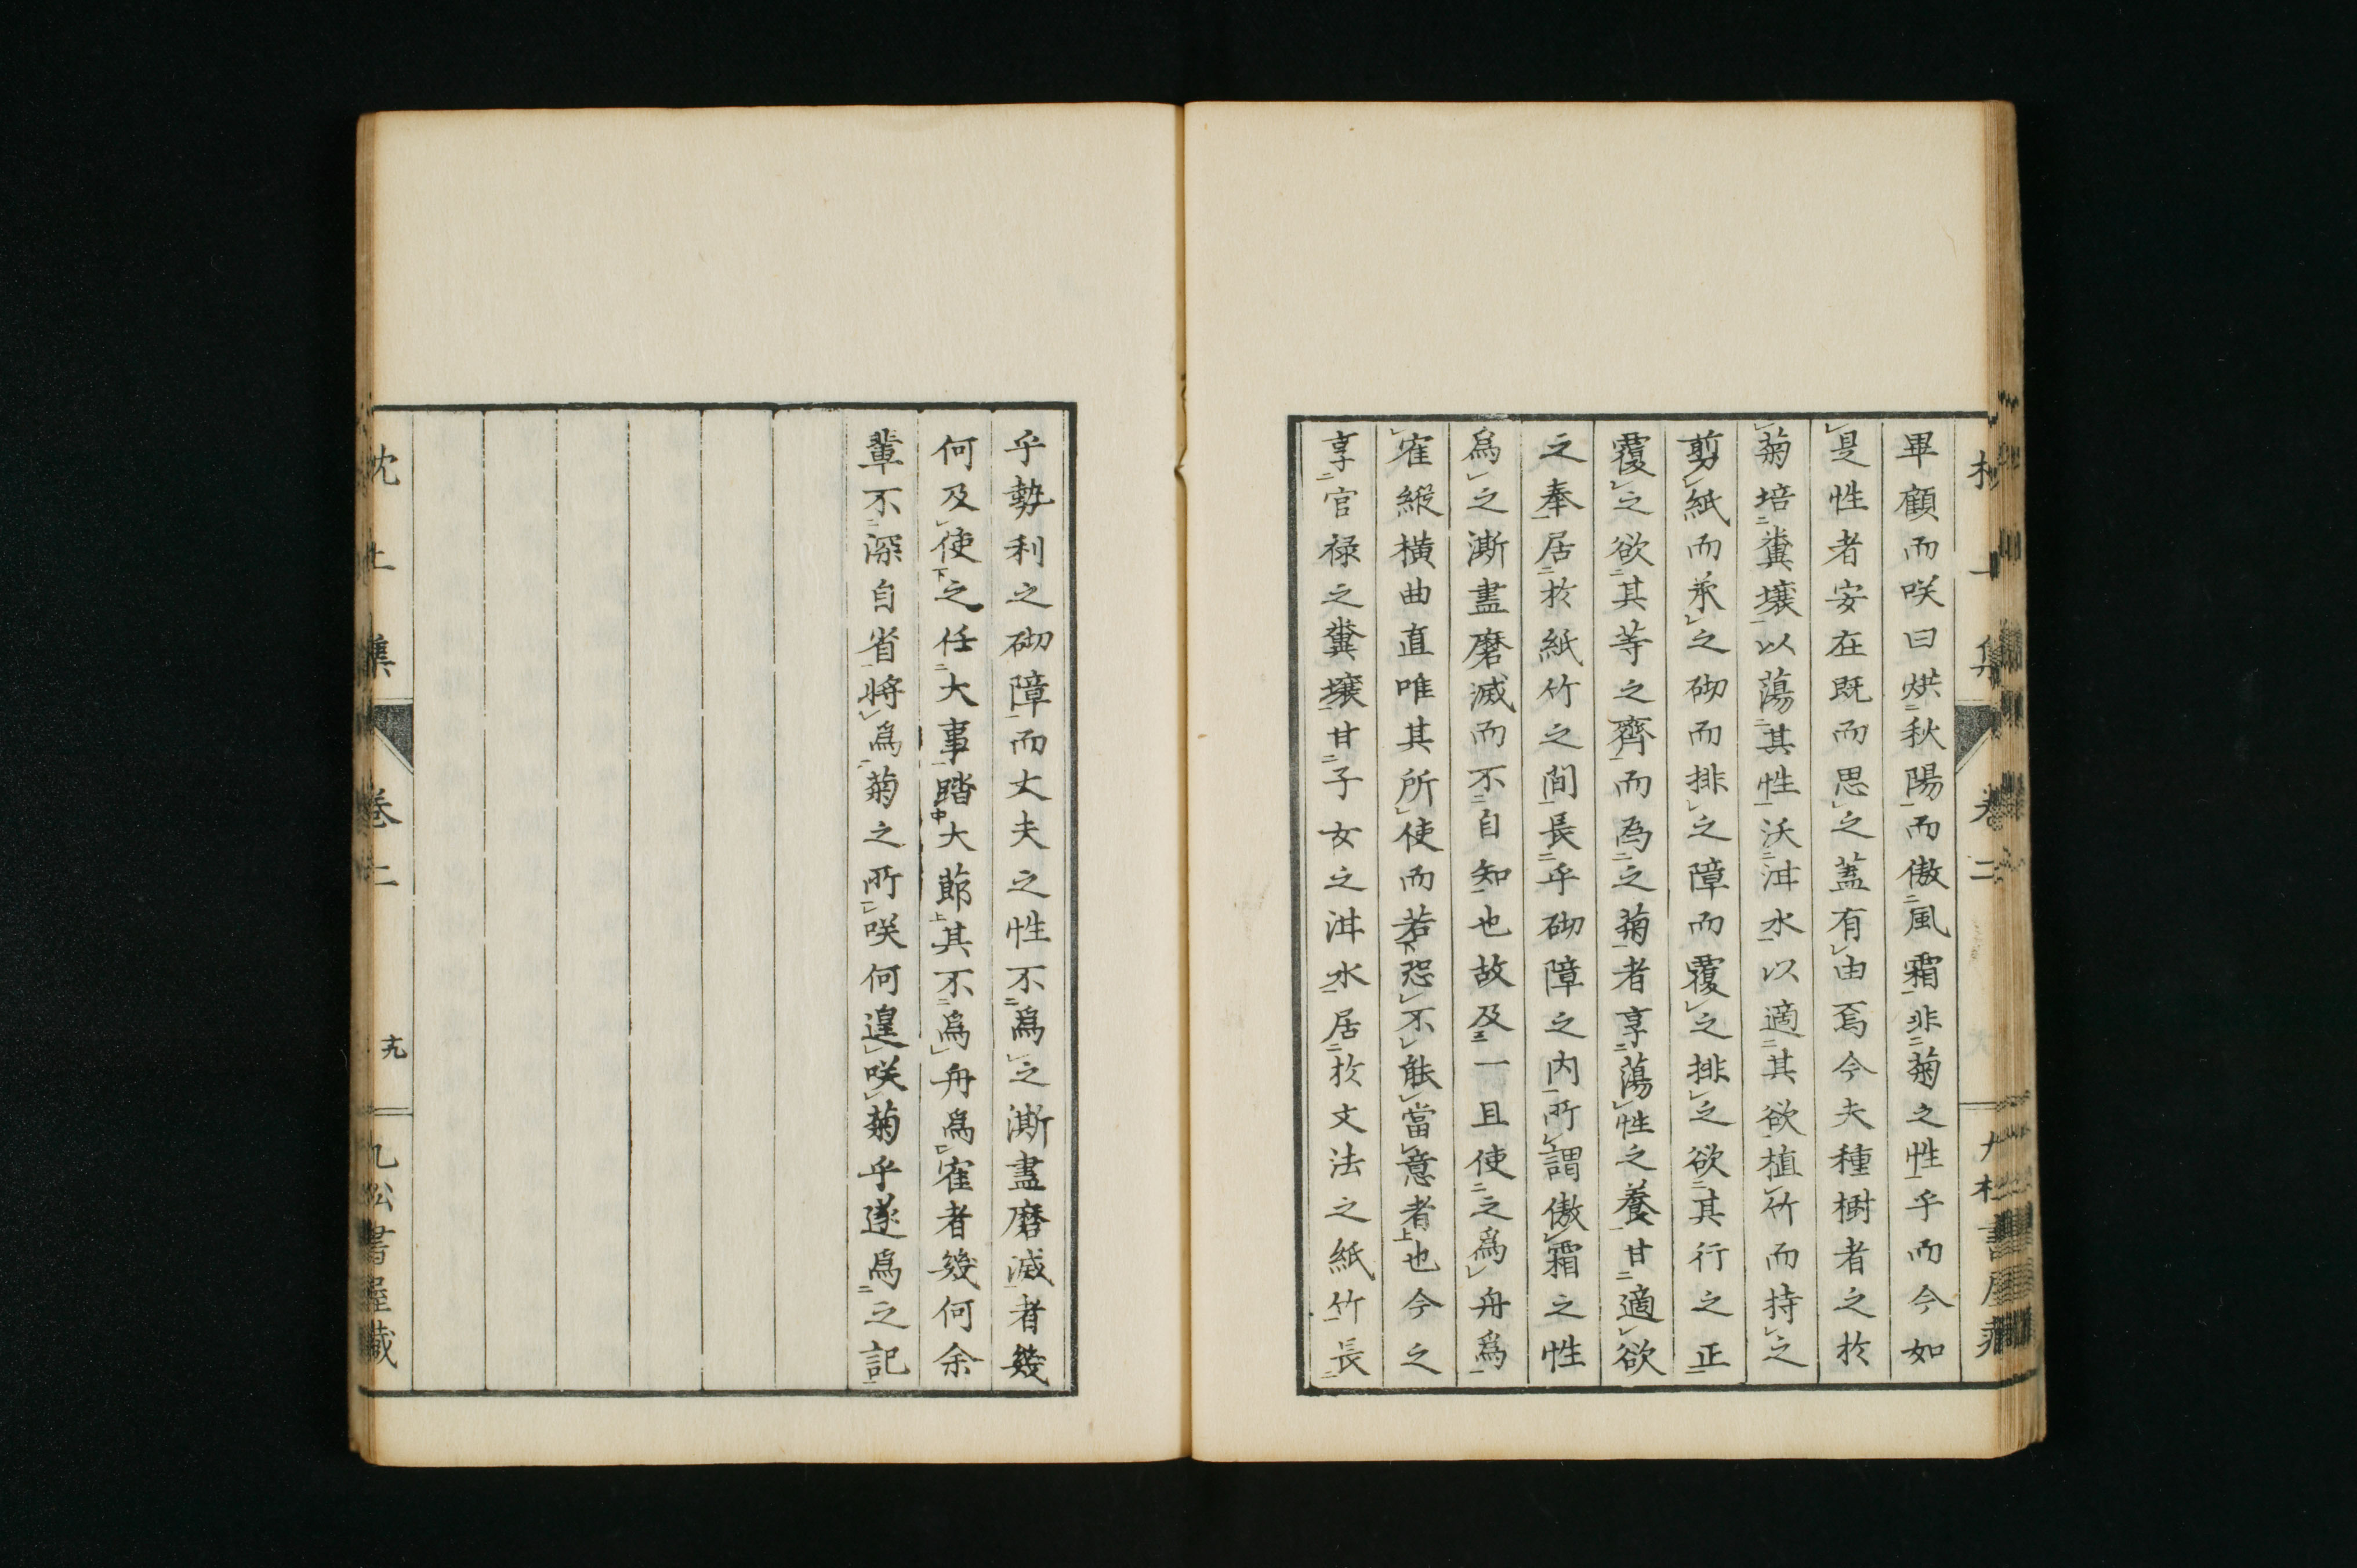 畢顧而咲曰烘秋陽而傲風霜非菊之性乎而今如
是性者安在既而思之蓋有由焉今夫種樹者之於
菊培糞壤以蕩其性沃泔水以適其欲植竹而持之
剪紙而承之砌而排之障而覆之排之欲其行之正
覆之欲其等之齊而為之菊者享蕩性之養甘適欲
之奉居於紙竹之間長乎砌障之内所謂傲霜之性
爲之澌盡磨滅而不自知也故及一且使之爲舟爲
寉縱橫曲直唯其所使而若恐不能當意者也今之
享官禄之糞壤甘子女之泔水居於文法之紙竹長
乎勢利之砌障而丈夫之性不爲之澌盡磨滅者幾
何及使之任大事踏大節其不爲舟爲寉者幾何余
輩不深自省將爲菊之所咲何遑咲菊乎遂爲之記
枕上集 卷二 十九 九松書屋藏